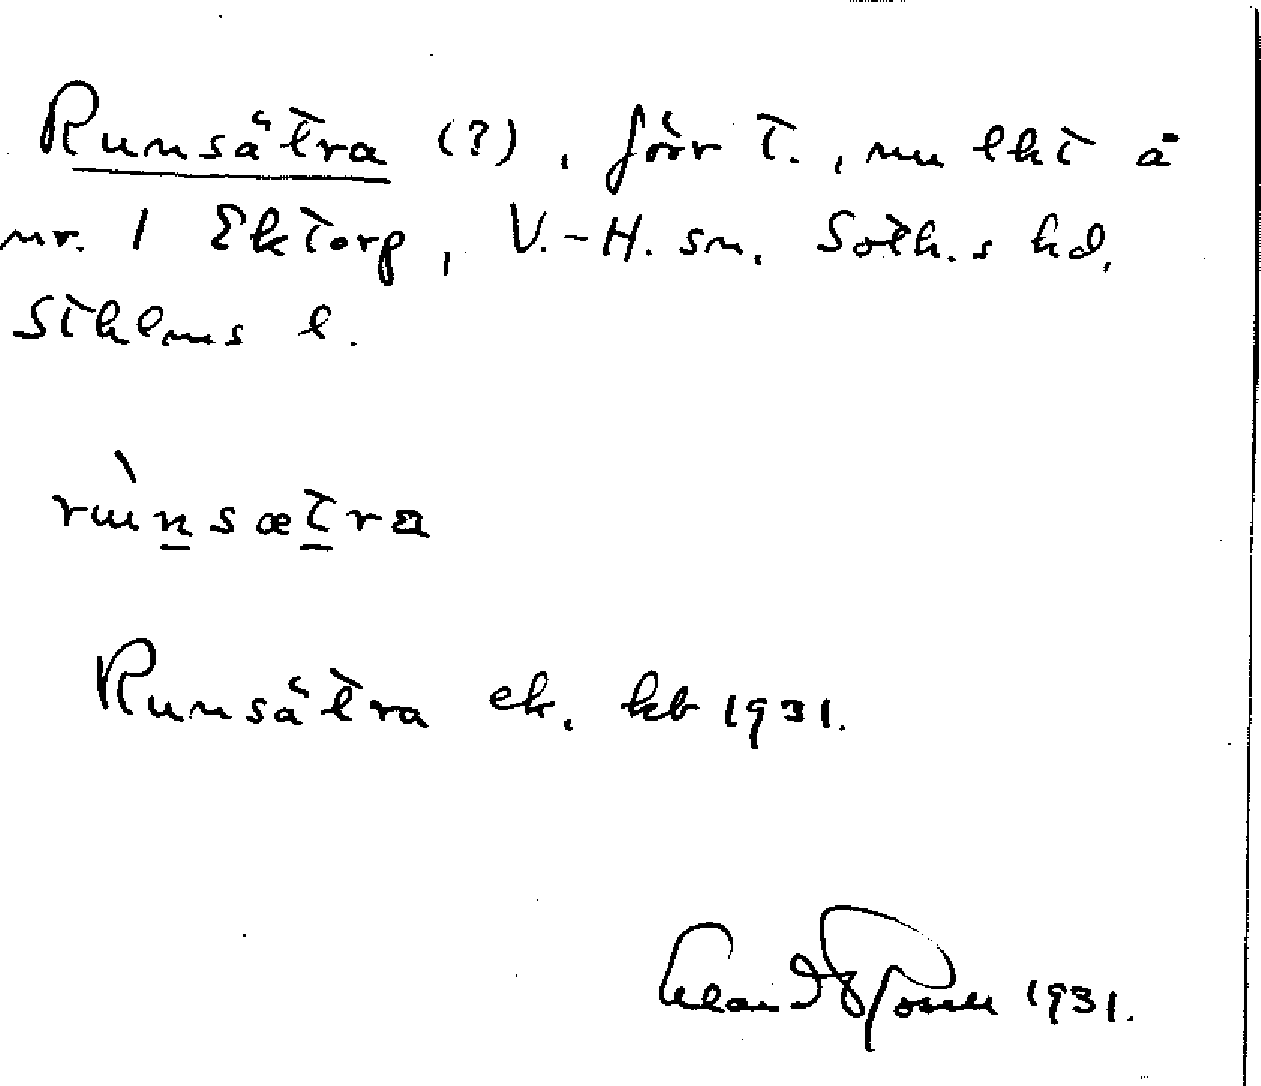 Runsätra (?), förr t., nu lht å
nr. 1 Ektorp, V.-H. sn. Soth.s hd,
Sthlms l.
rùnsætra
Runsätra ek. kb 1931.
1931.